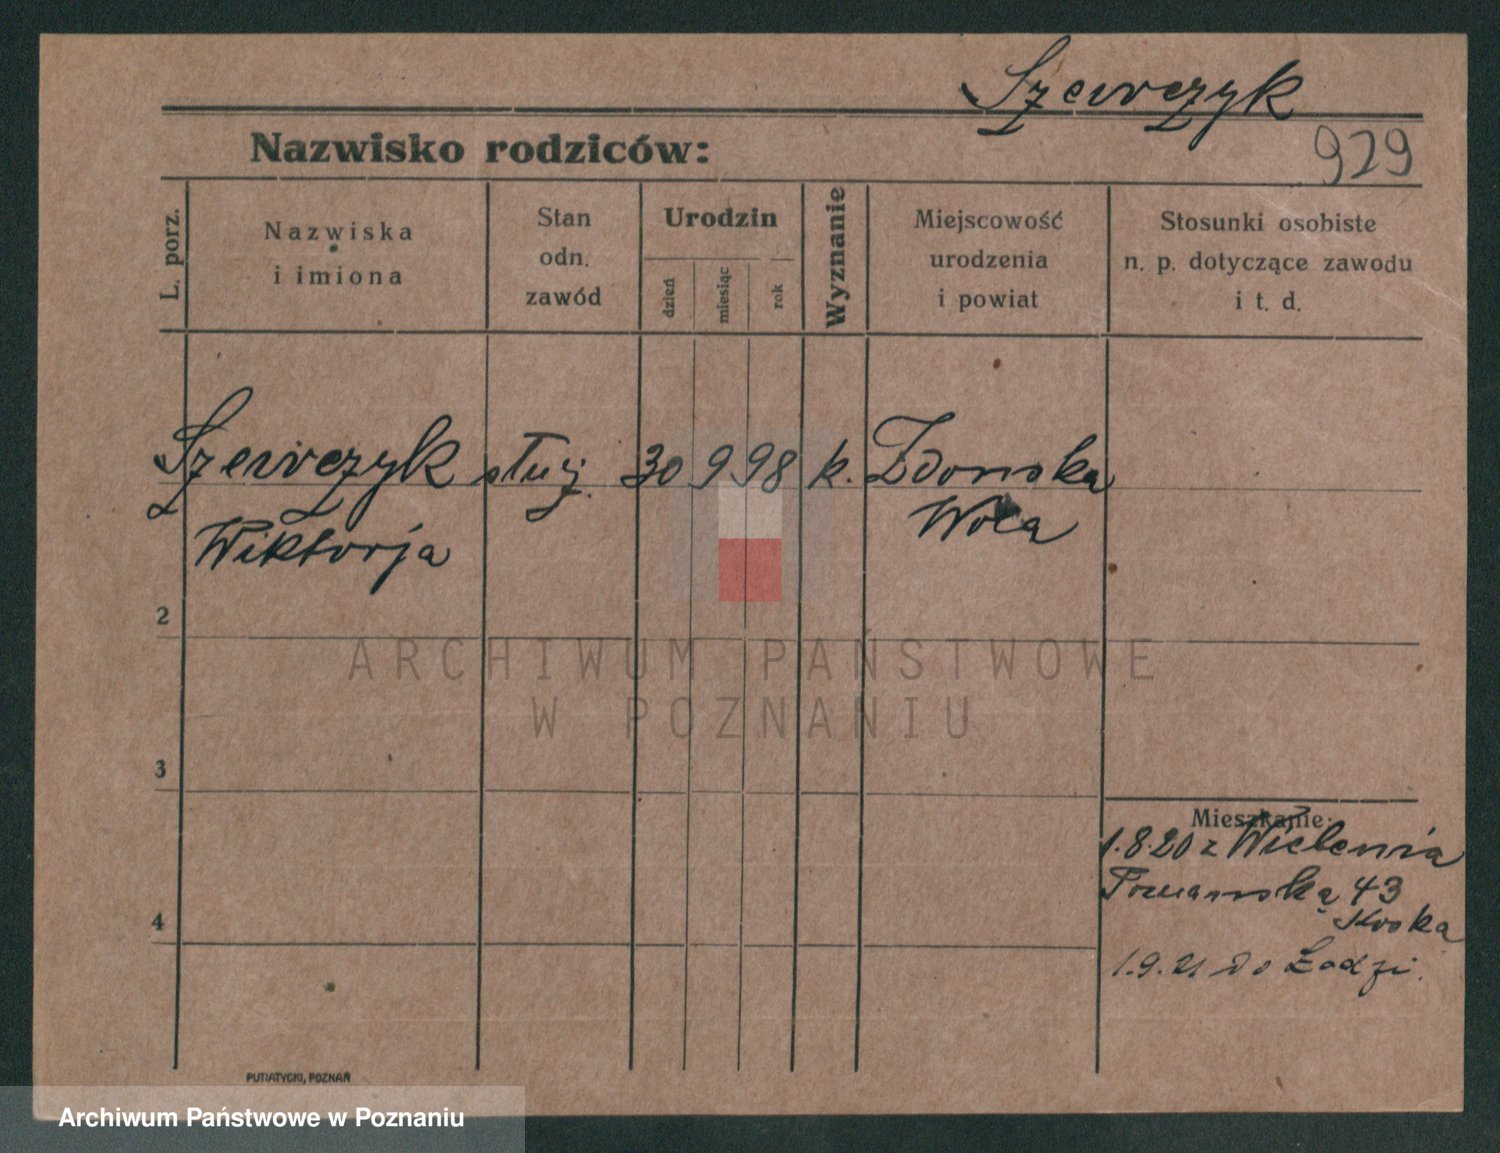 Szewczyk
Nazwisko rodziców:
929
L. porz.
Nazwiska
i imiona
Stan
odn.
zawód
Urodzin
dzień
miesiąc
rok
Wyznanie
Miejscowość
urodzenia
i powiat
Stosunki osobiste
n. p. dotyczące zawodu
i t. d.
Szewczyk służ. 30 9 98 k. Zdońska
Wiktorja Wola
2
ARCHIWUM PAŃSTWOWE
W POZNANIU
3
Mieszkanie:
1.8.20 z Wielenia
43
4
1.9.21 do Łodzi.
PUTIATYCKI, POZNAŃ
Archiwum Państwowe w Poznaniu